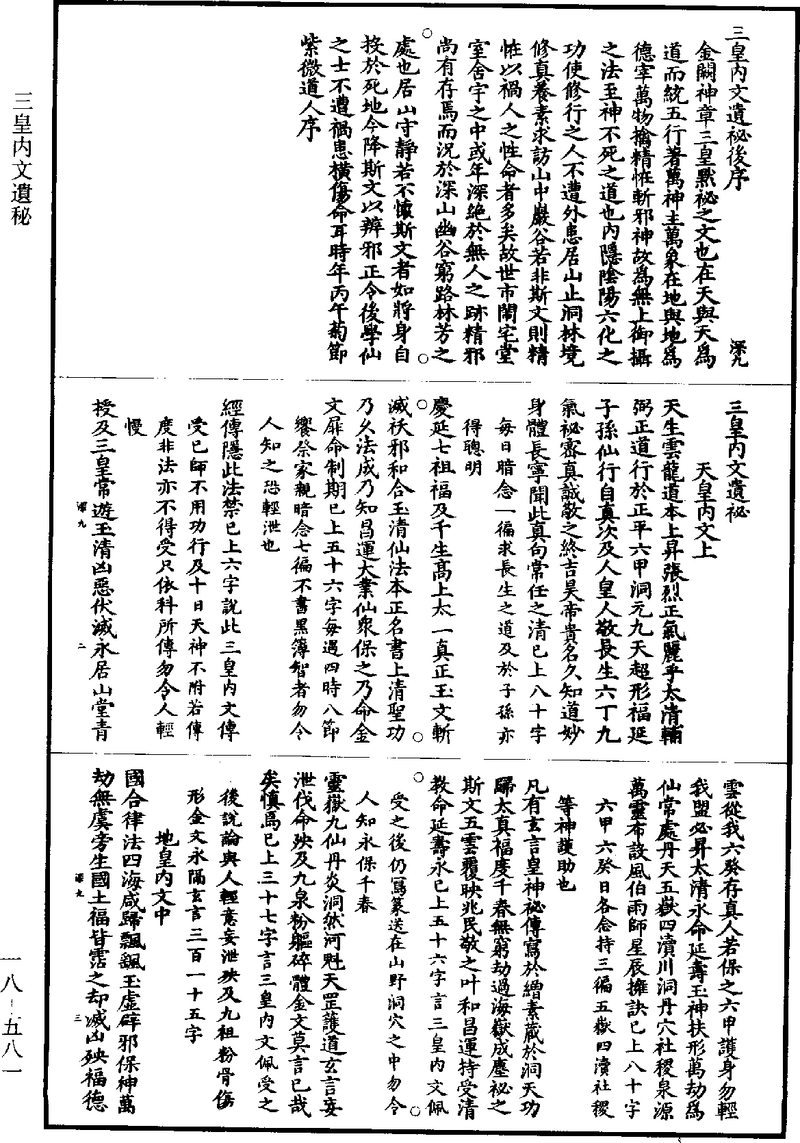 三皇內文遺秘
三皇內文遺祕後序
深九
金闕神章三皇默祕之文也在天與天爲
道而統五行著萬神主萬象在地與地爲
德宰萬物擒精恠斬邪神故爲無上御攝
之法至神不死之道也內隱陰陽六化之
功使修行之人不遭外患居山止洞林境
修真養素求訪山中巖谷若非斯文則精
恠以禍人之性命者多矣故世市閙宅堂
室舍宇之中或年深絕於無人之跡精邪
尚有存焉而況於深山幽谷窮路林芳之
處也居山守靜若不懷斯文者如將身自
投於死地今降斯文以辨邪正令後學仙
之士不遭禍患橫傷命耳時年丙午菊節
紫微道人序
三皇內文遺祕
天皇內文上
天生雲龍道本上昇張烈正氣麗乎太清輔
弼正道行於正平六甲洞元九天超形福延
子孫仙行自真次及人皇人敬長生六丁九
氣祕密真誠敬之終吉昊帝貴名久知道妙
身體長寧聞此真句常任之清已上八十字
每日暗念一徧求長生之道及於子孫亦
得聰明
慶延七祖福及千生髙上太一真正玉文斬
滅祅邪和合玉清仙法本正名書上清聖功
乃久法成乃知昌運大業仙衆保之乃命金
文靡命制期已上五十六字每遇四時八節
饗祭家親暗念七徧不書黑簿智者勿令
人知之恐輕泄也
經傳隱此法禁已上六字說此三皇內文傳
受已師不用功行及十日天神不附若傳
度非法亦不得受只依科所傳勿令人輕
慢
授及三皇常遊玉清凶惡伏滅永居山堂青
深九
二
雲從我六癸存真人若保之六甲護身勿輕
我盟必昇太清永命延壽玉神扶形萬劫爲
仙常處丹天五嶽四瀆川洞丹穴社稷泉源
萬靈布設風伯雨師星辰擁訣已上八十字
六甲六癸日各念持三徧五嶽四瀆社稷
等神護助也
凡有玄言皇神祕傳寫於繒素藏於洞天功
歸太真福慶千春無窮劫過海嶽成塵祕之
斯文五雲覆映兆民敬之叶和昌運持受清
教命延壽永已上五十六字言三皇內文佩
受之後仍寫篆送在山野洞穴之中勿令
人知永保千春
靈嶽九仙丹炎洞然河魁天罡護道玄言妄
泄伐命殃及九泉粉軀碎體金文莫言已哉
矣慎焉已上三十七字言三皇內文佩受之
後說論與人輕意妄泄殃及九祖粉骨傷
形金文永隔玄言三百一十五字
地皇內文中
國合律法四海咸歸飄颻玉虛辟邪保神萬
劫無虞旁生國土福皆霑之却滅凶殃福德
深九
三
一八-五八一